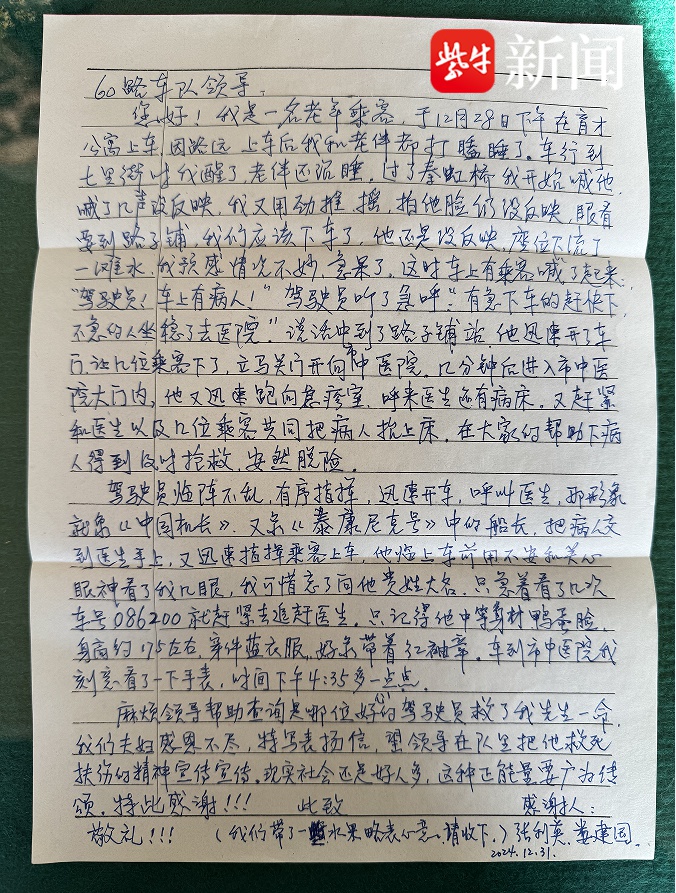 紫牛新闻
60路车队领导:
您好!我是一名老年乘客,于12月28日下午在育才
公寓上车,因路远上车后我和老伴都打瞌睡了。车行到
七里街时我醒了,老伴还沉睡。过了秦虹桥我开始喊他,
喊了几声没反映,我又用劲推,摇,拍他脸仍没反映,眼看
要到路子铺,我们应该下车了,他还是没反映,座位下流了
一滩水,我预感情况不妙,急呆了,这时车上有乘客喊了起来:
“驾驶员!车上有病人!”驾驶员听了急呼:“有急下车的赶快下,
不急的人坐稳了去医院”。说话中到了路子铺站,他迅速开了车
门,让几位乘客下了,立马关门开向市中医院。几分钟后进入市中医
院大门内,他又迅速跑向急疹室,呼来医生还有病床。又赶紧
和医生以及几位乘客共同把病人抬上床,在大家的帮助下病
人得到及时抢救,安然脱险。
驾驶员临阵不乱,有序指挥,迅速开车,呼叫医生,那形象
就象《中国机长》,又象《泰康尼克号》中的船长,把病人交
到医生手上,又迅速指挥乘客上车,他临上车前用不安和关心
眼神看了我几眼,我可惜忘了问他贵姓大名,只急着看了几次
车号086200就赶紧去追赶医生。只记得他中等身材鸭蛋脸,
身高约175左右,穿件蓝衣服,好象带着红袖章。车到市中医院我
刻意看了一下手表,时间下午4:35多一点点。
麻烦领导帮助查询是哪位好心的驾驶员救了我先生一命,
我们夫妇感恩不尽,特写表扬信,望领导在队里把他救死
扶伤的精神宣传宣传,现实社会还是好人多,这种正能量要广为传
颂。特此感谢!!! 此致 感谢人:
敬礼!!! (我们带了一点水果略表心意,请收下。)张利英 娄建国
2024.12.31.